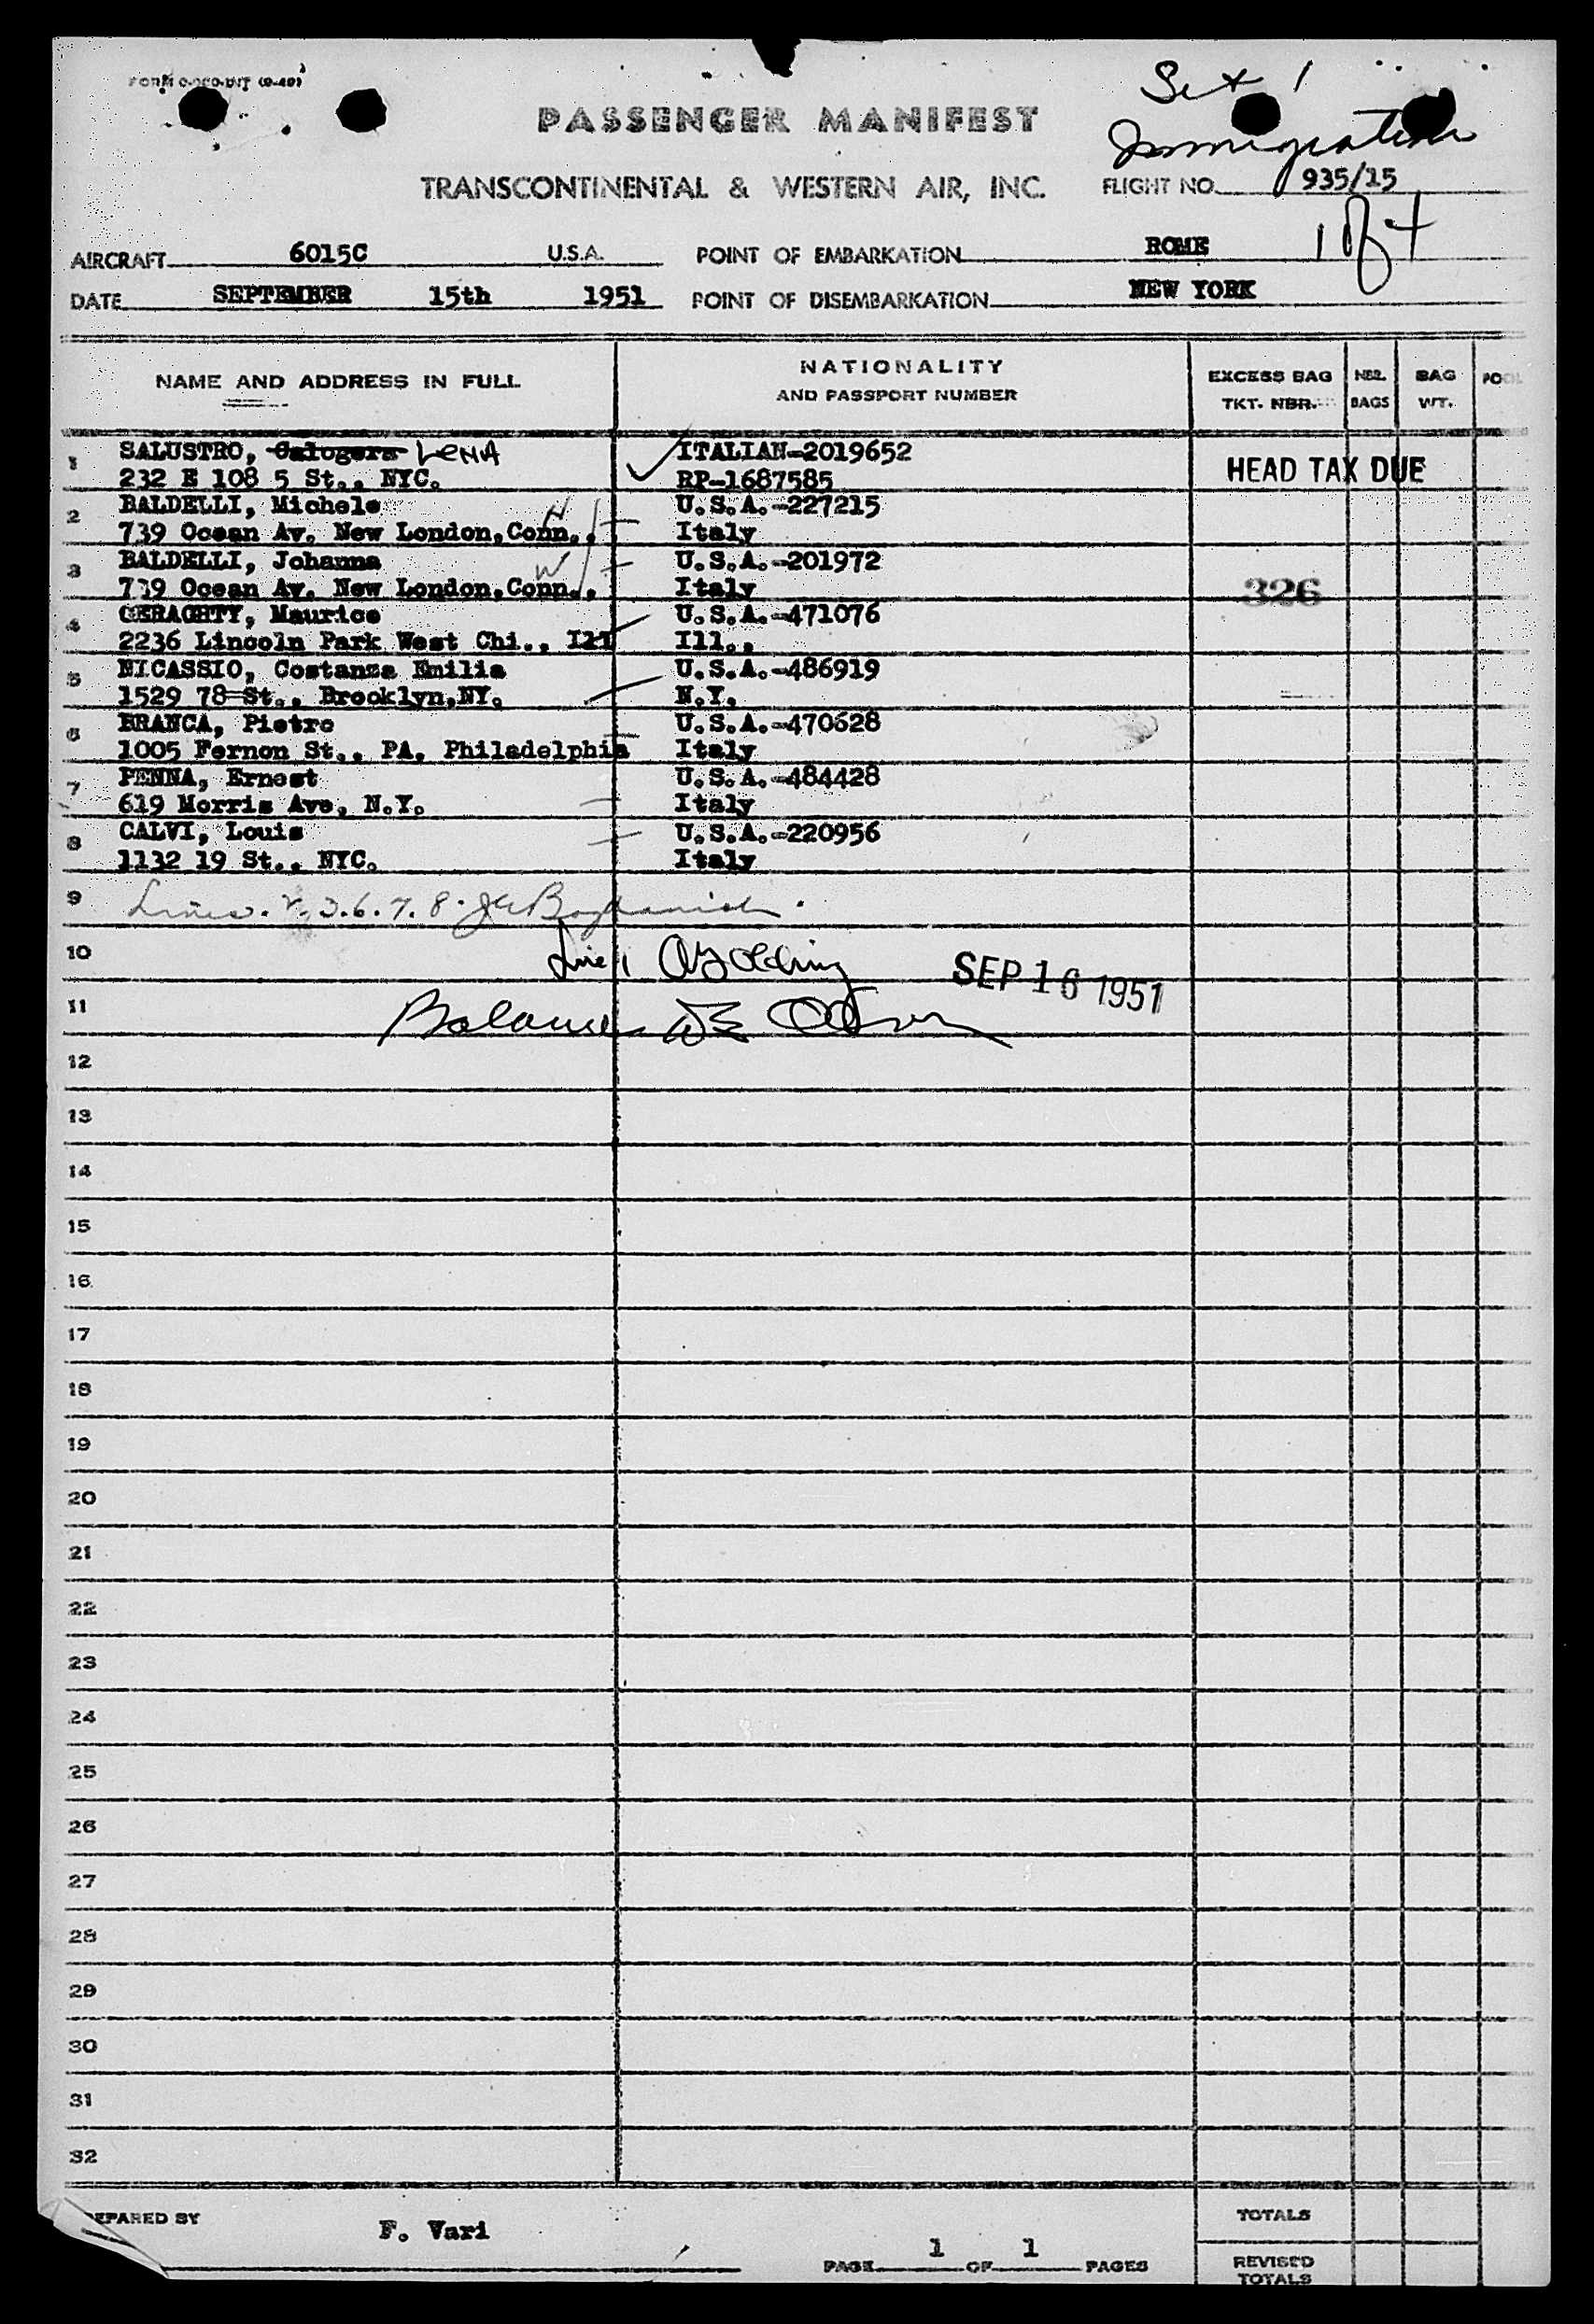 Set 1
PASSENGER MANIFEST
Immigration
TRANSCONTINENTAL & WESTERN AIR, INC. FLIGHT NO. 935/15
1 of 4
AIRCRAFT 6015C U.S.A. POINT OF EMBARKATION ROME
DATE SEPTEMBER 15th 1951 POINT OF DISEMBARKATION NEW YORK
NAME AND ADDRESS IN FULL NATIONALITY AND PASSPORT NUMBER EXCESS BAG TKT. NBR. NBR. BAGS BAG WT. POOL
1 SALUSTRO, Calogera LENA ITALIAN-2019652
232 E 108 5 St., NYC. RP-1687585 HEAD TAX DUE
2 BALDELLI, Michele U.S.A.-227215
739 Ocean Av. New London,Conn., Italy
3 BALDELLI, Johanna U.S.A.-201972
739 Ocean Av. New London,Conn., Italy 326
4 GERAGHTY, Maurice U.S.A.-471076
2236 Lincoln Park West Chi., Ill Ill.,
5 NICASSIO, Costanza Emilia U.S.A.-486919
1529 78 St., Brooklyn,NY. N.Y.
6 BRANCA, Pietro U.S.A.-470628
1005 Fernon St., PA. Philadelphia Italy
7 PENNA, Ernest U.S.A.-484428
619 Morris Ave, N.Y. Italy
8 CALVI, Louis U.S.A.-220956
1132 19 St., NYC. Italy
9 Lines. 2. 3. 6. 7. 8.
10 Line 1 SEP 16 1951
11 Balance
12
13
14
15
16
17
18
19
20
21
22
23
24
25
26
27
28
29
30
31
32
PREPARED BY F. Vari TOTALS
PAGE 1 OF 1 PAGES REVISED TOTALS